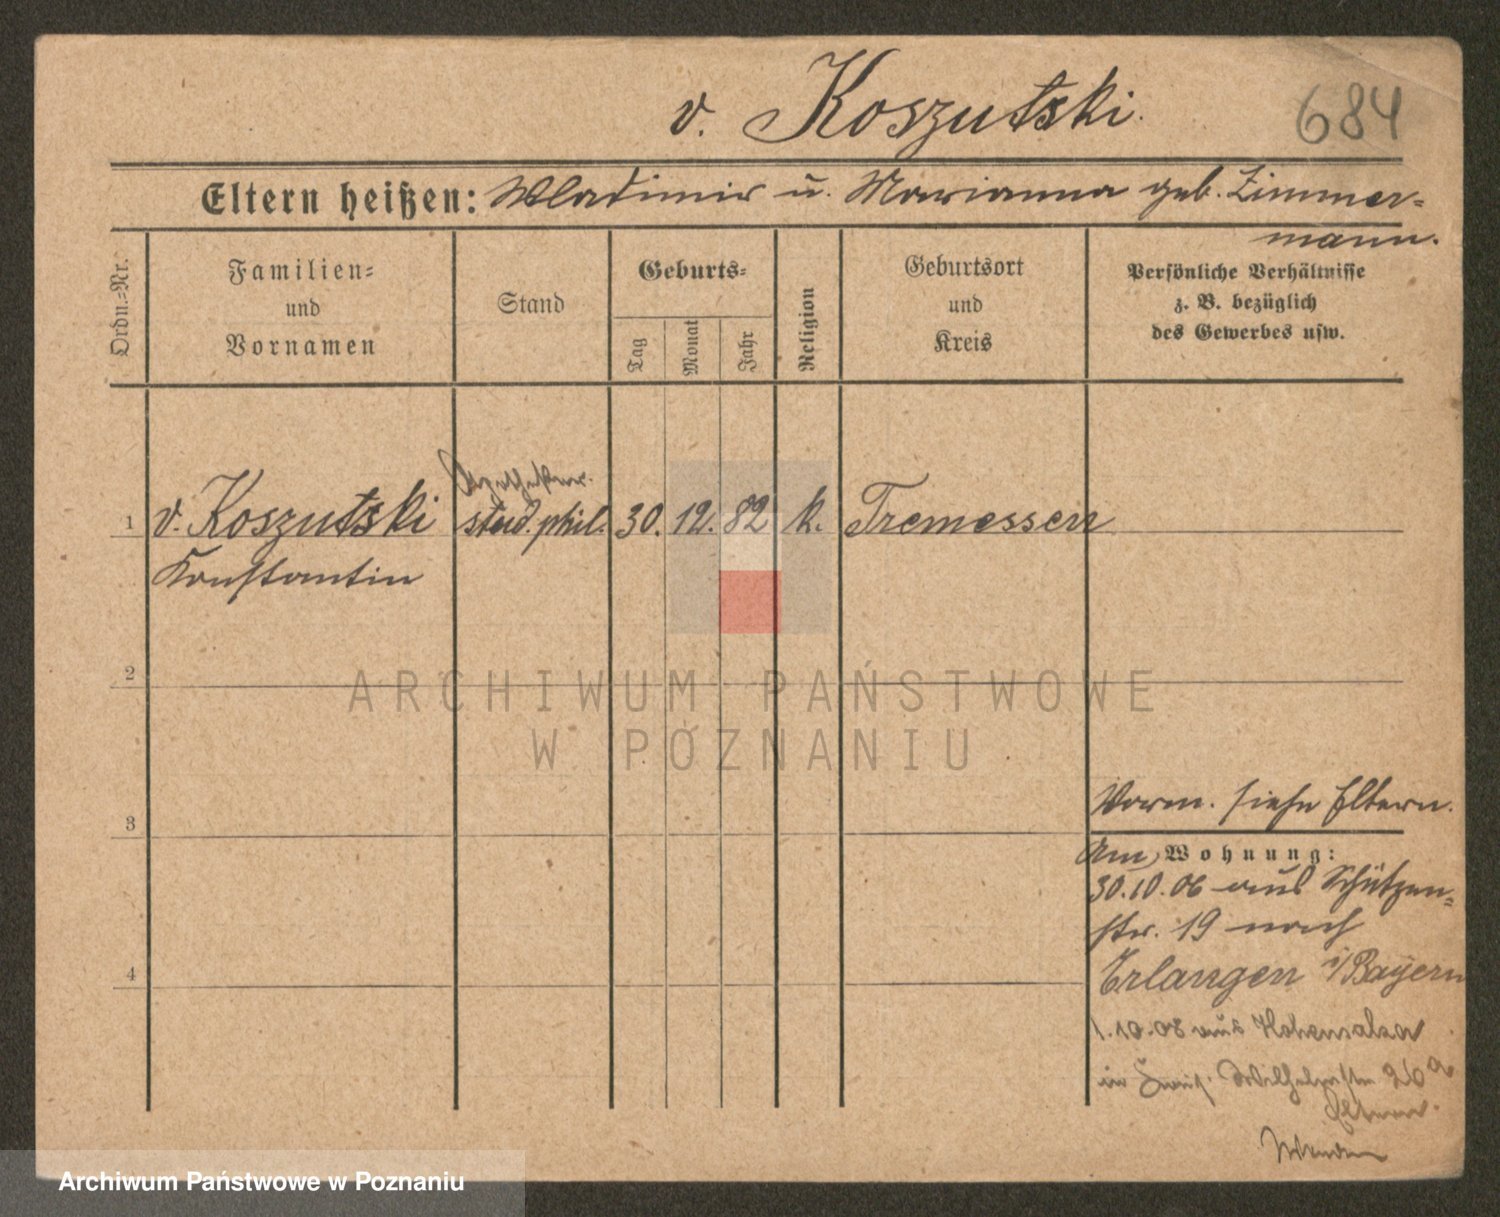 v. Koszutski.
684
Eltern heißen: Wladimir u. Marianna geb. Zimmer-
mann.
Ordn.-Nr.
Familien-
und
Vornamen
Stand
Geburts-
Tag
Monat
Jahr
Religion
Geburtsort
und
Kreis
Persönliche Verhältnisse
z. B. bezüglich
des Gewerbes usw.
Apotheker.
1 v. Koszutski stud. phil. 30. 12. 82 k. Tremessen
Konstantin
2
ARCHIWUM PAŃSTWOWE
W POZNANIU
Vorm. siehe Eltern.
3
Am Wohnung:
30.10.06 aus Schützen-
str. 19 nach
4
Erlangen i/Bayern
1.10.08 aus Hohensalza
in Wilhelmstr 26a
Eltern.
Wenden
Archiwum Państwowe w Poznaniu